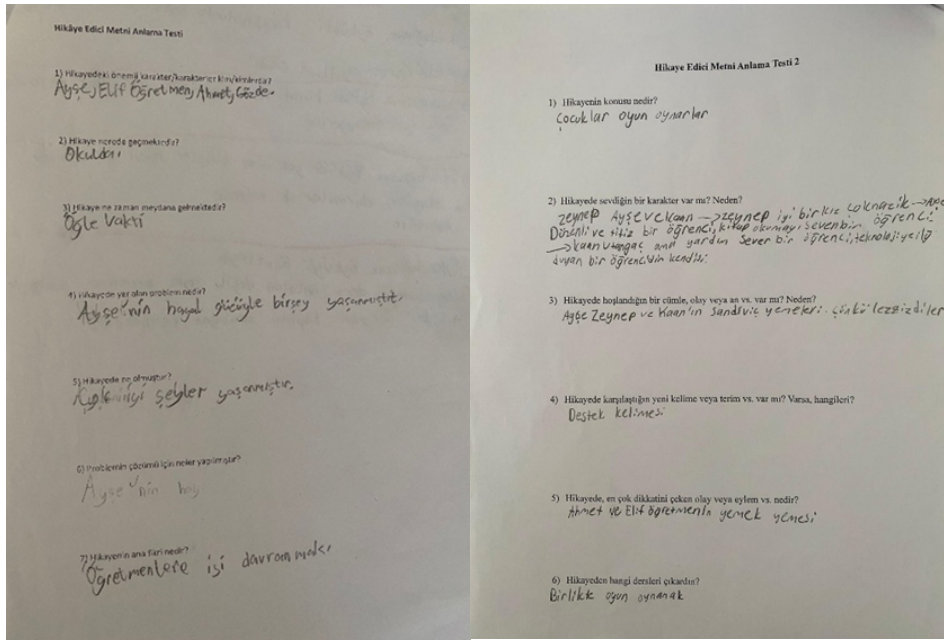 Hikâye Edici Metni Anlama Testi
1) Hikayedeki önemli karakter/karakterler kim/kimlerdir?
Ayşe, Elif Öğretmen, Ahmet, Gözde.
2) Hikaye nerede geçmektedir?
Okulda
3) Hikaye ne zaman meydana gelmektedir?
Öğle Vakti
4) Hikayede yer alan problem nedir?
Ayşe'nin hayal gücüyle birşey yaşanmıştır.
5) Hikayede ne olmuştur?
şeyler yaşanmıştır.
6) Problemin çözümü için neler yapılmıştır?
Ayşe'nin hay
7) Hikayenin ana fikri nedir?
Öğretmenlere iyi davranmak.
Hikaye Edici Metni Anlama Testi 2
1) Hikayenin konusu nedir?
Çocuklar oyun oynarlar
2) Hikayede sevdiğin bir karakter var mı? Neden?
Zeynep Ayşe ve Kaan → Zeynep iyi bir kız çok nazik →
Düzenli ve titiz bir öğrenci, kitap okumayı seven bir öğrenci
→ Kaan utangaç ama yardım sever bir öğrenci, teknolojiye ilgi
duyan bir öğrencidin kendisi
3) Hikayede hoşlandığın bir cümle, olay veya an vs. var mı? Neden?
Ayşe Zeynep ve Kaan'ın Sandviç yemeleri. Çünkü lezzizdiler
4) Hikayede karşılaştığın yeni kelime veya terim vs. var mı? Varsa, hangileri?
Destek kelimesi
5) Hikayede, en çok dikkatini çeken olay veya eylem vs. nedir?
Ahmet ve Elif öğretmenin yemek yemesi
6) Hikayeden hangi dersleri çıkardın?
Birlikte oyun oynamak